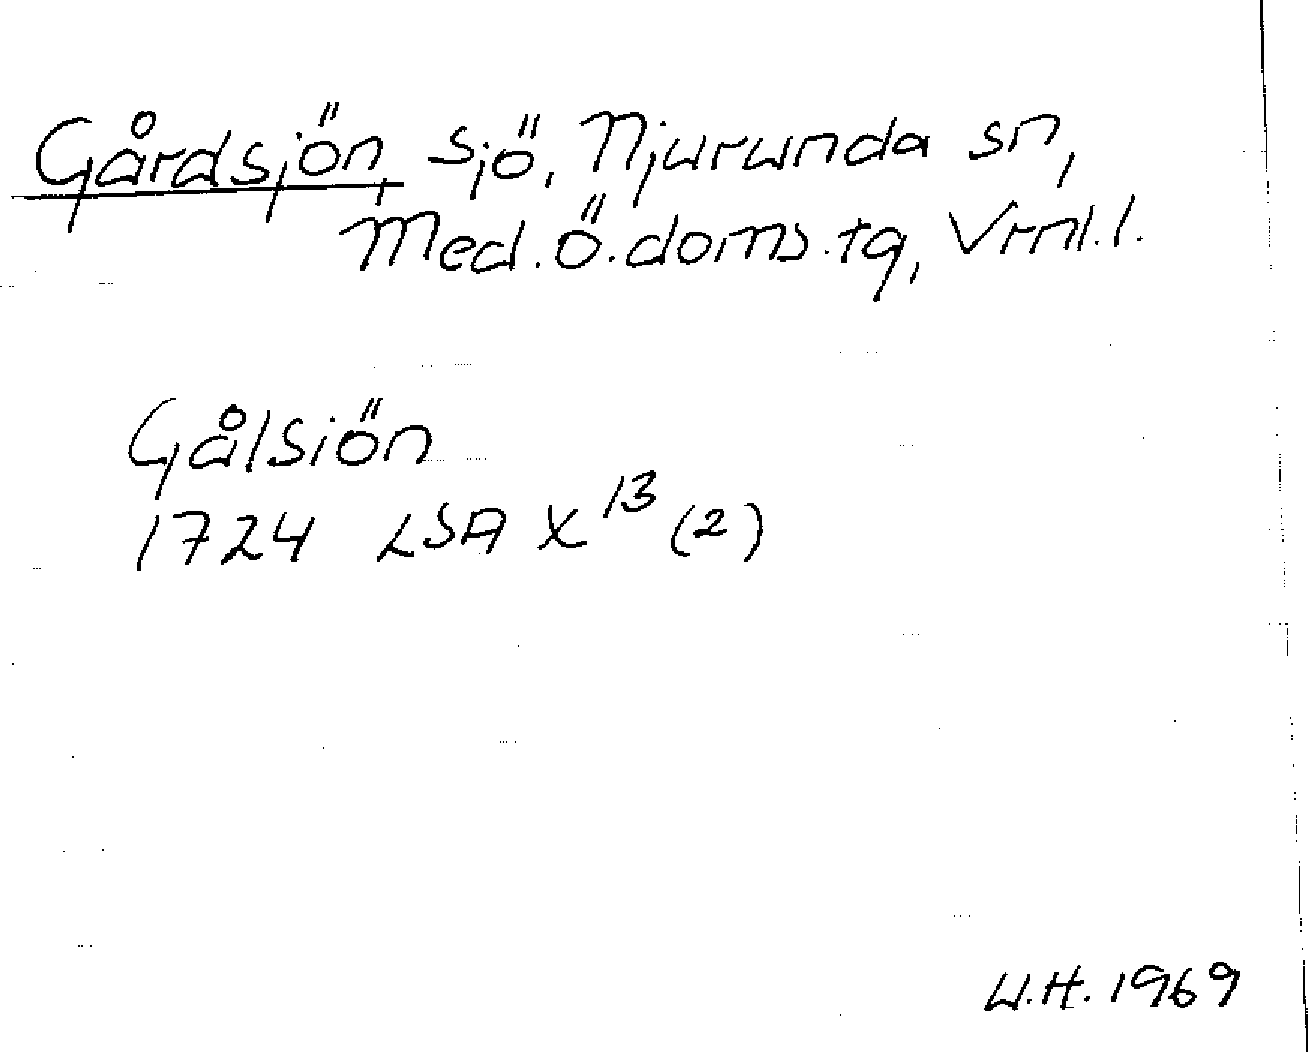 Gårdsjön, sjö, Njurunda sn,
Med.ö.doms.tg, Vrnl.l.
Gålsiön
1724 LSA X¹³ (2)
U.H. 1969